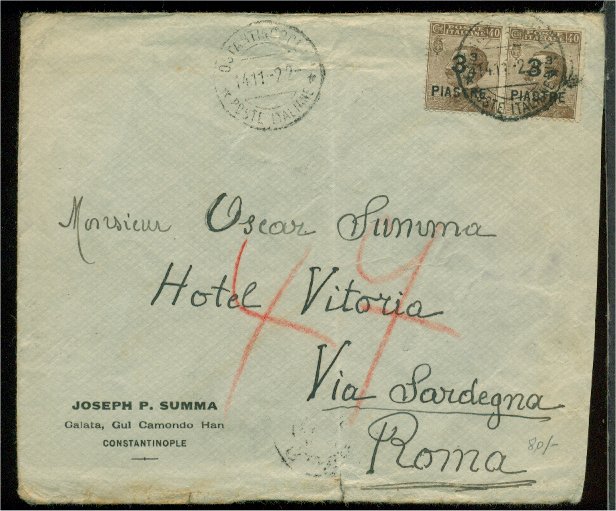 COSTANTINOPOLI
14.11.22
* POSTE ITALIANE *
POSTE ITALIANE 40
3 3/4
PIASTRE
40
3 3/4
PIASTRE
14.11.2
POSTE ITALIANE
Monsieur Oscar Summa
Hotel Vitoria
Via Sardegna
Roma
44
JOSEPH P. SUMMA
Galata, Gul Camondo Han
CONSTANTINOPLE
80/-